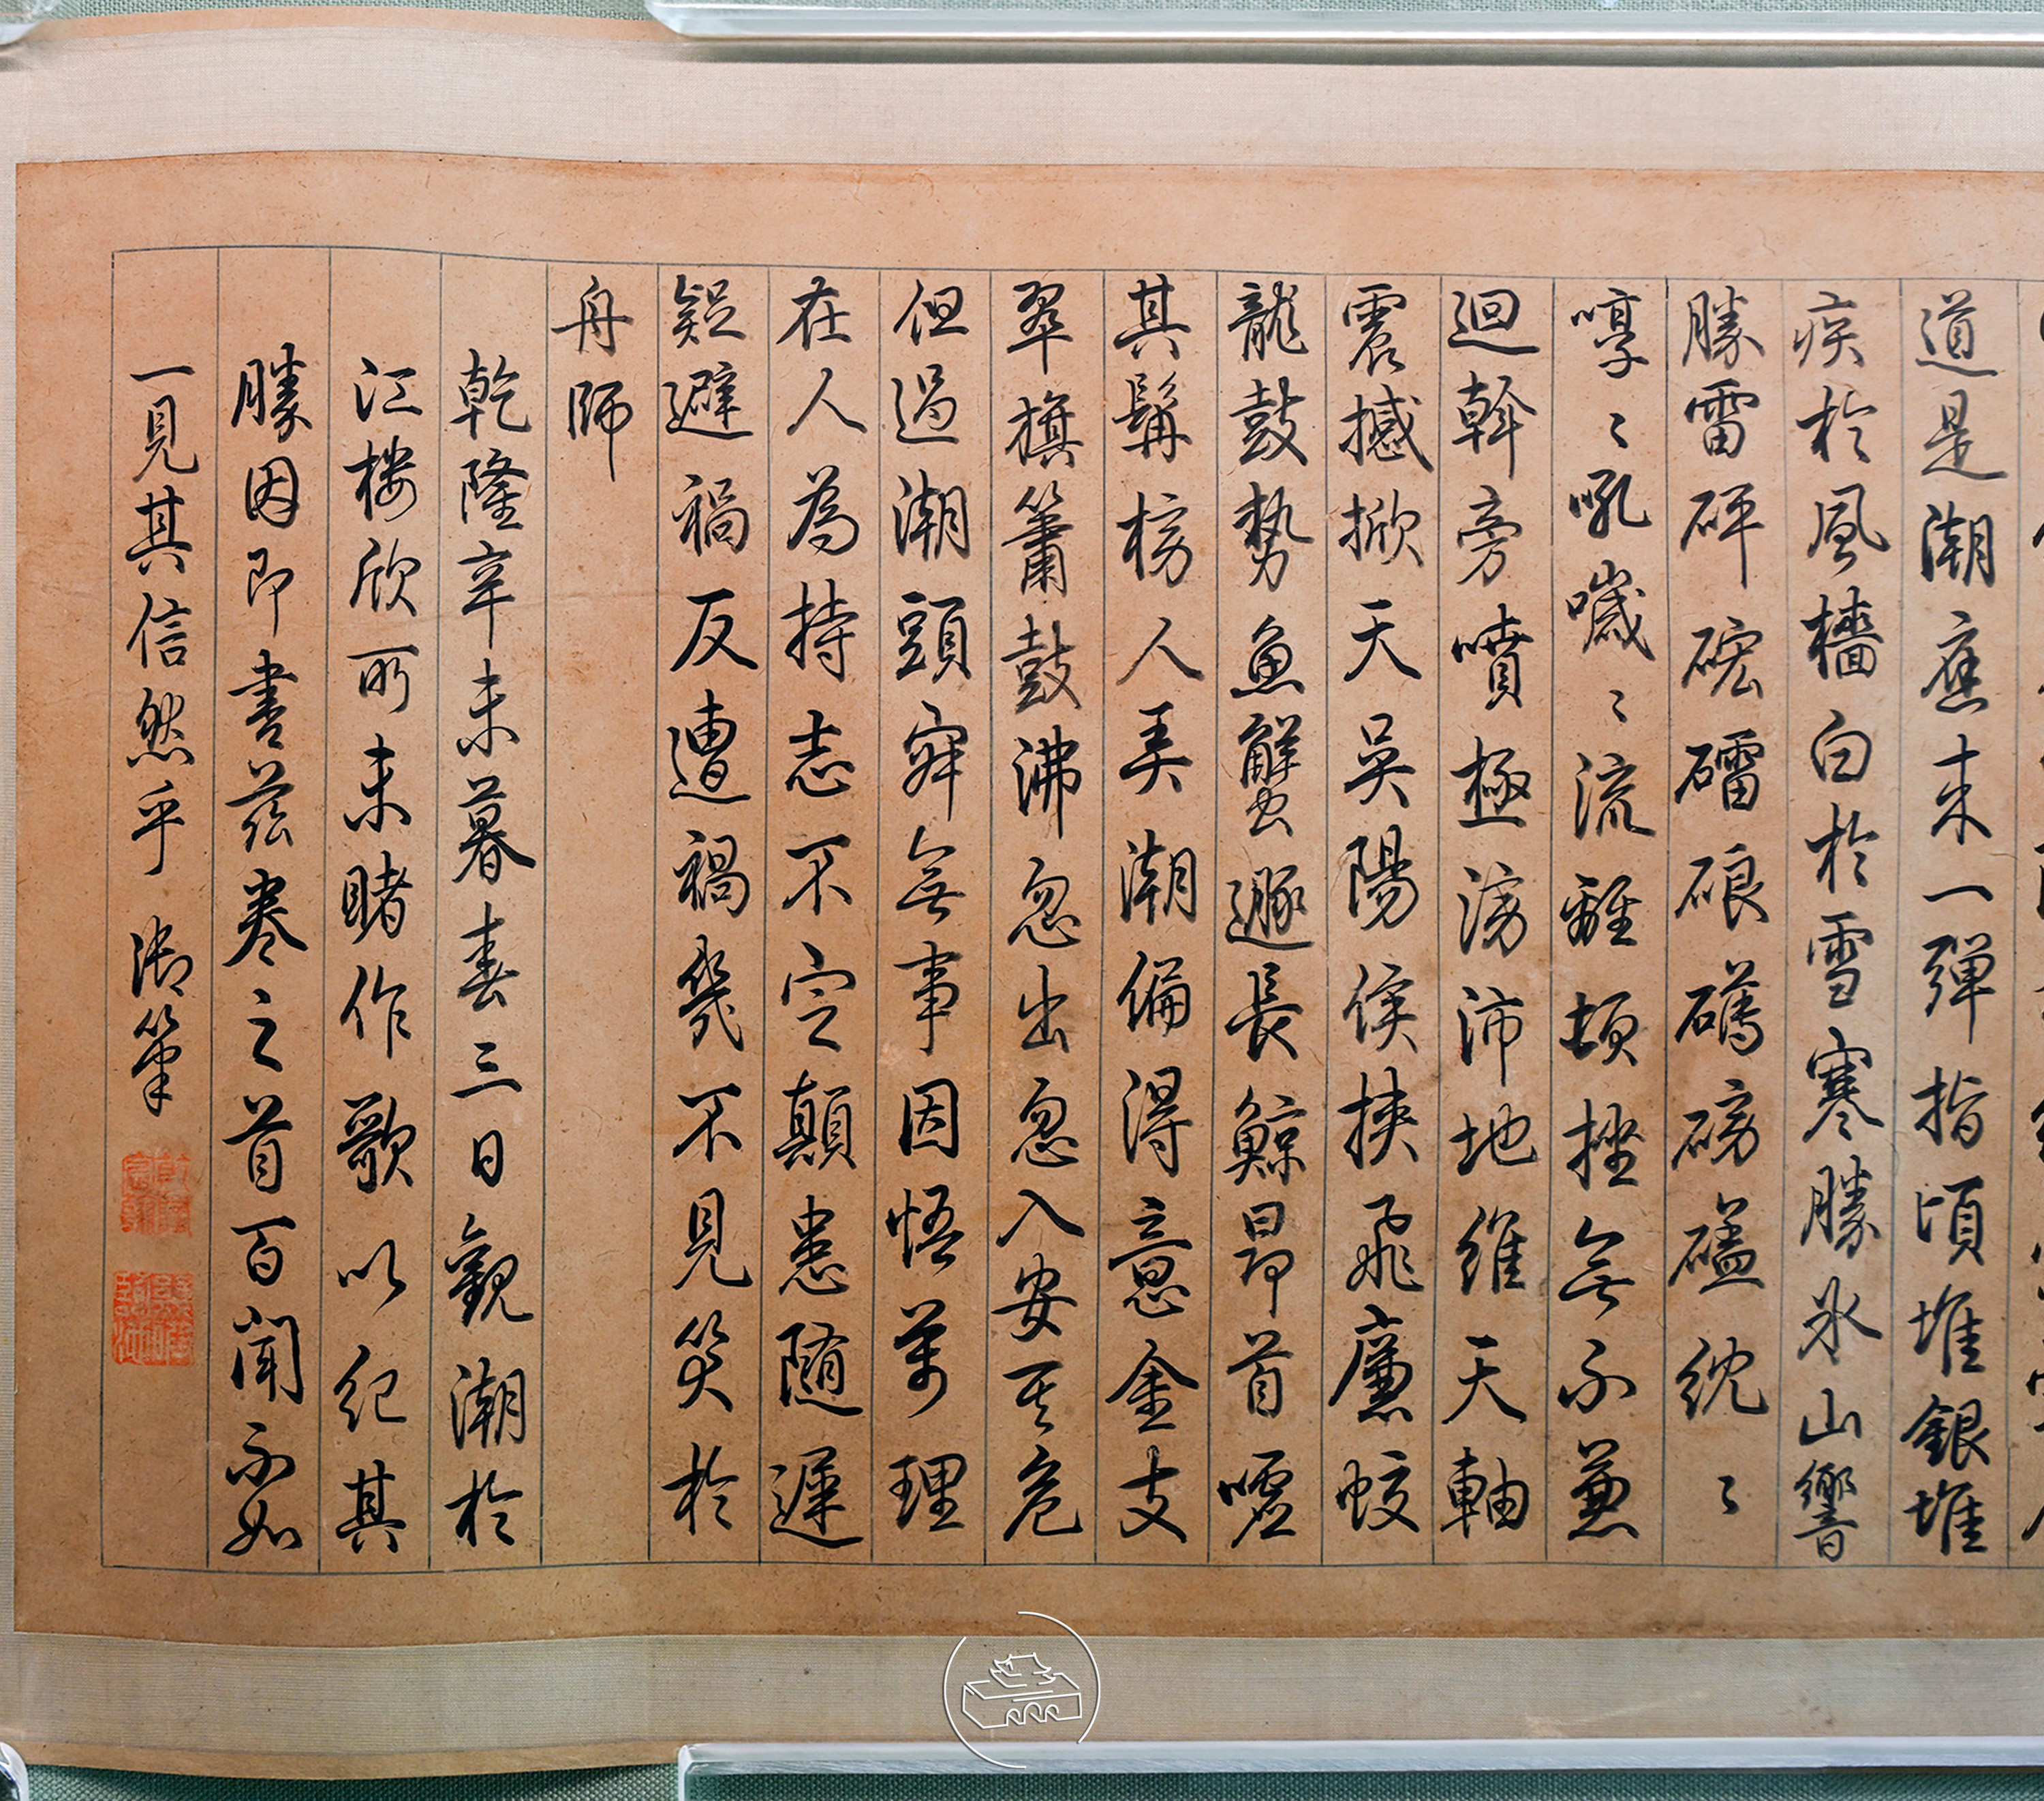 道是潮應來一彈指頃堆銀堆
疾於風檣白於雪寒勝氷山響
勝雷砰硡礌硠礴磅礚紞〻
嘷〻吼噷〻流離頓挫無不兼
迴斡旁噴極滂沛地維天軸
震撼掀天吳陽侯挾飛廉蛟
龍鼓勢魚蟹遯長鯨昂首噓
其鬐榜人弄潮偏得意金支
翠旗簫鼓沸忽出忽入安其危
但過潮頭寂無事因悟萬理
在人為持志不定顛患隨遲
疑避禍反遭禍幾不見笑於
舟師
乾隆辛未暮春三日觀潮於
江樓欣所未睹作歌以紀其
勝因即書茲卷之首百聞不如
一見其信然乎御筆